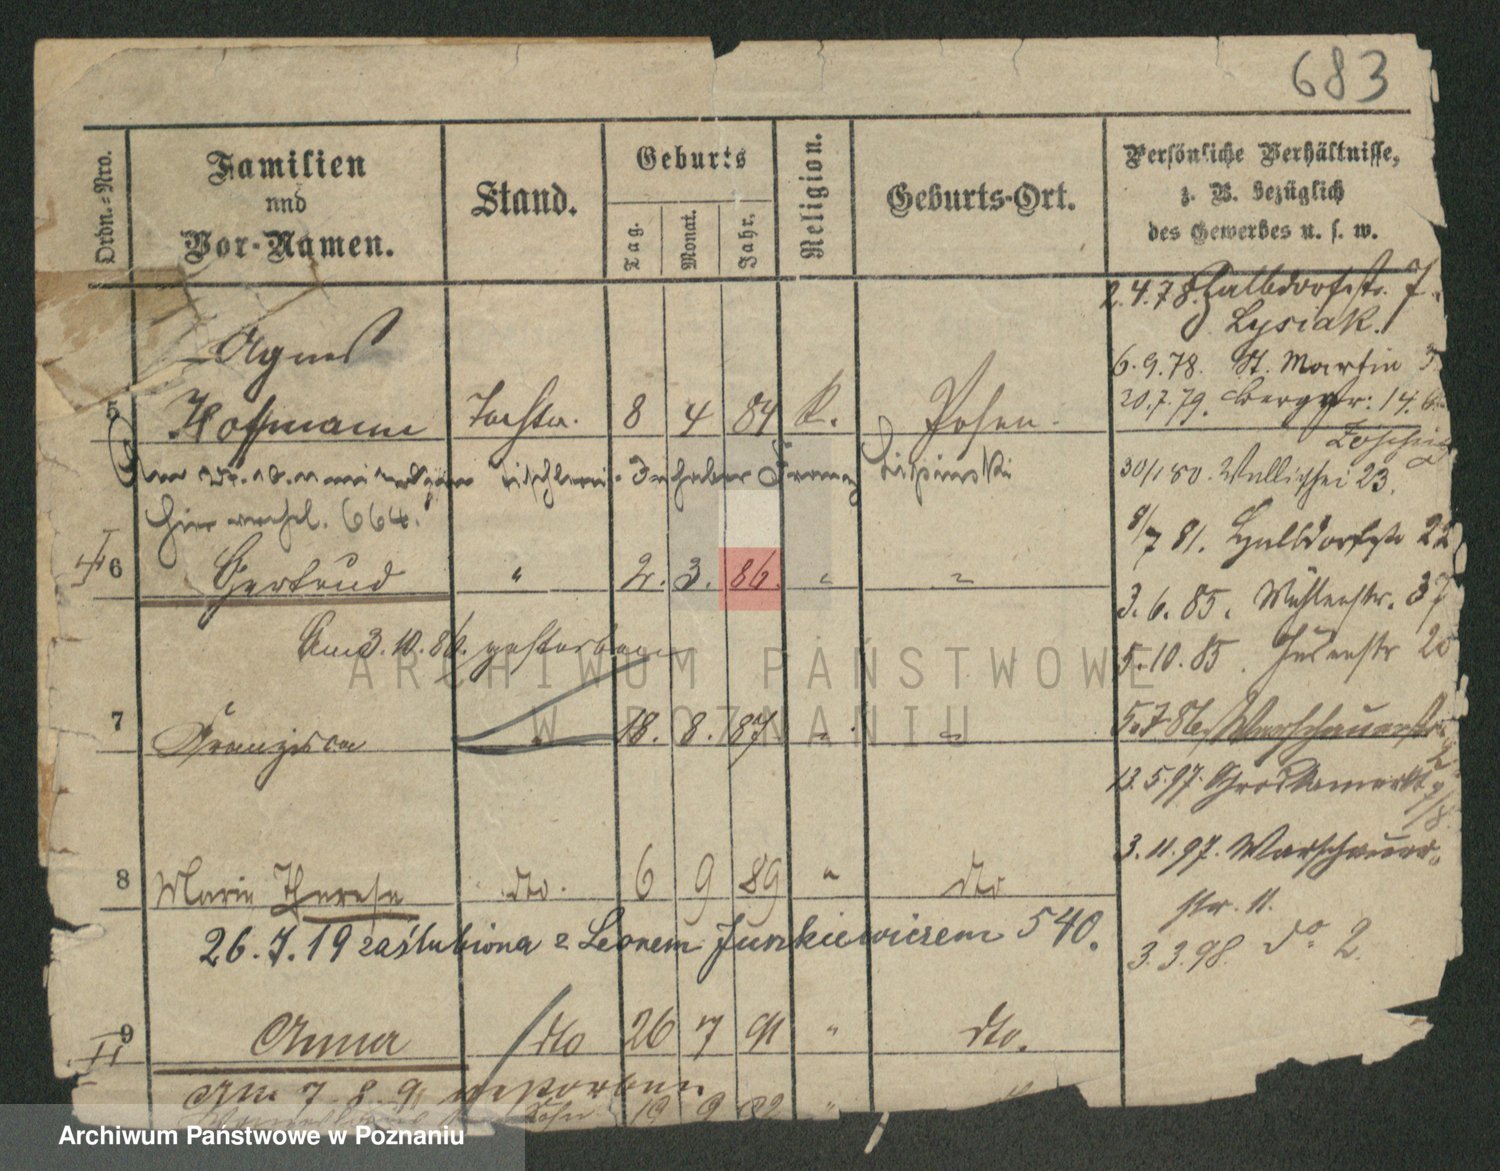 683
Ordn.-Nro.
Familien
und
Vor-Namen.
Stand.
Geburts
Tag.
Monat.
Jahr.
Religion.
Geburts-Ort.
Persönliche Verhältnisse,
z. B. bezüglich
des Gewerbes u. s. w.
2.4.78. Halbdorfstr. 7.
Lysiak.
Agnes
6.9.78. St. Martin
5 Hoffmann Tochter. 8 4 84 K. Posen.
20.7.79. Bergstr: 14.
Tischlerei-Inhaber Franz
30/1 80. Wallischei 23.
hier verehel. 664.
8/7 81. Halbdorfstr 22
II
6 Gertrud " 2. 3. 86. " "
3.6.85. Mühlenstr. 37
Am 3.10.86. gestorben
5.10.85. 20
7 Franziska 18. 8. 87 " "
5.7.86. Warschauerstr.
13.5.97.
3.11.97. Warschauer-
str. 11.
8 Marie Therese dto. 6 9 89 " dto
26.7.19 zaślubiona z Leonem Junkiewiczem 540.
3.3.98. do. 2.
II
9 Anna dto 26 7 91 " dto.
Am 7. 8. 91 gestorben
19 9 82 "
ARCHIWUM PAŃSTWOWE
W POZNANIU
Archiwum Państwowe w Poznaniu